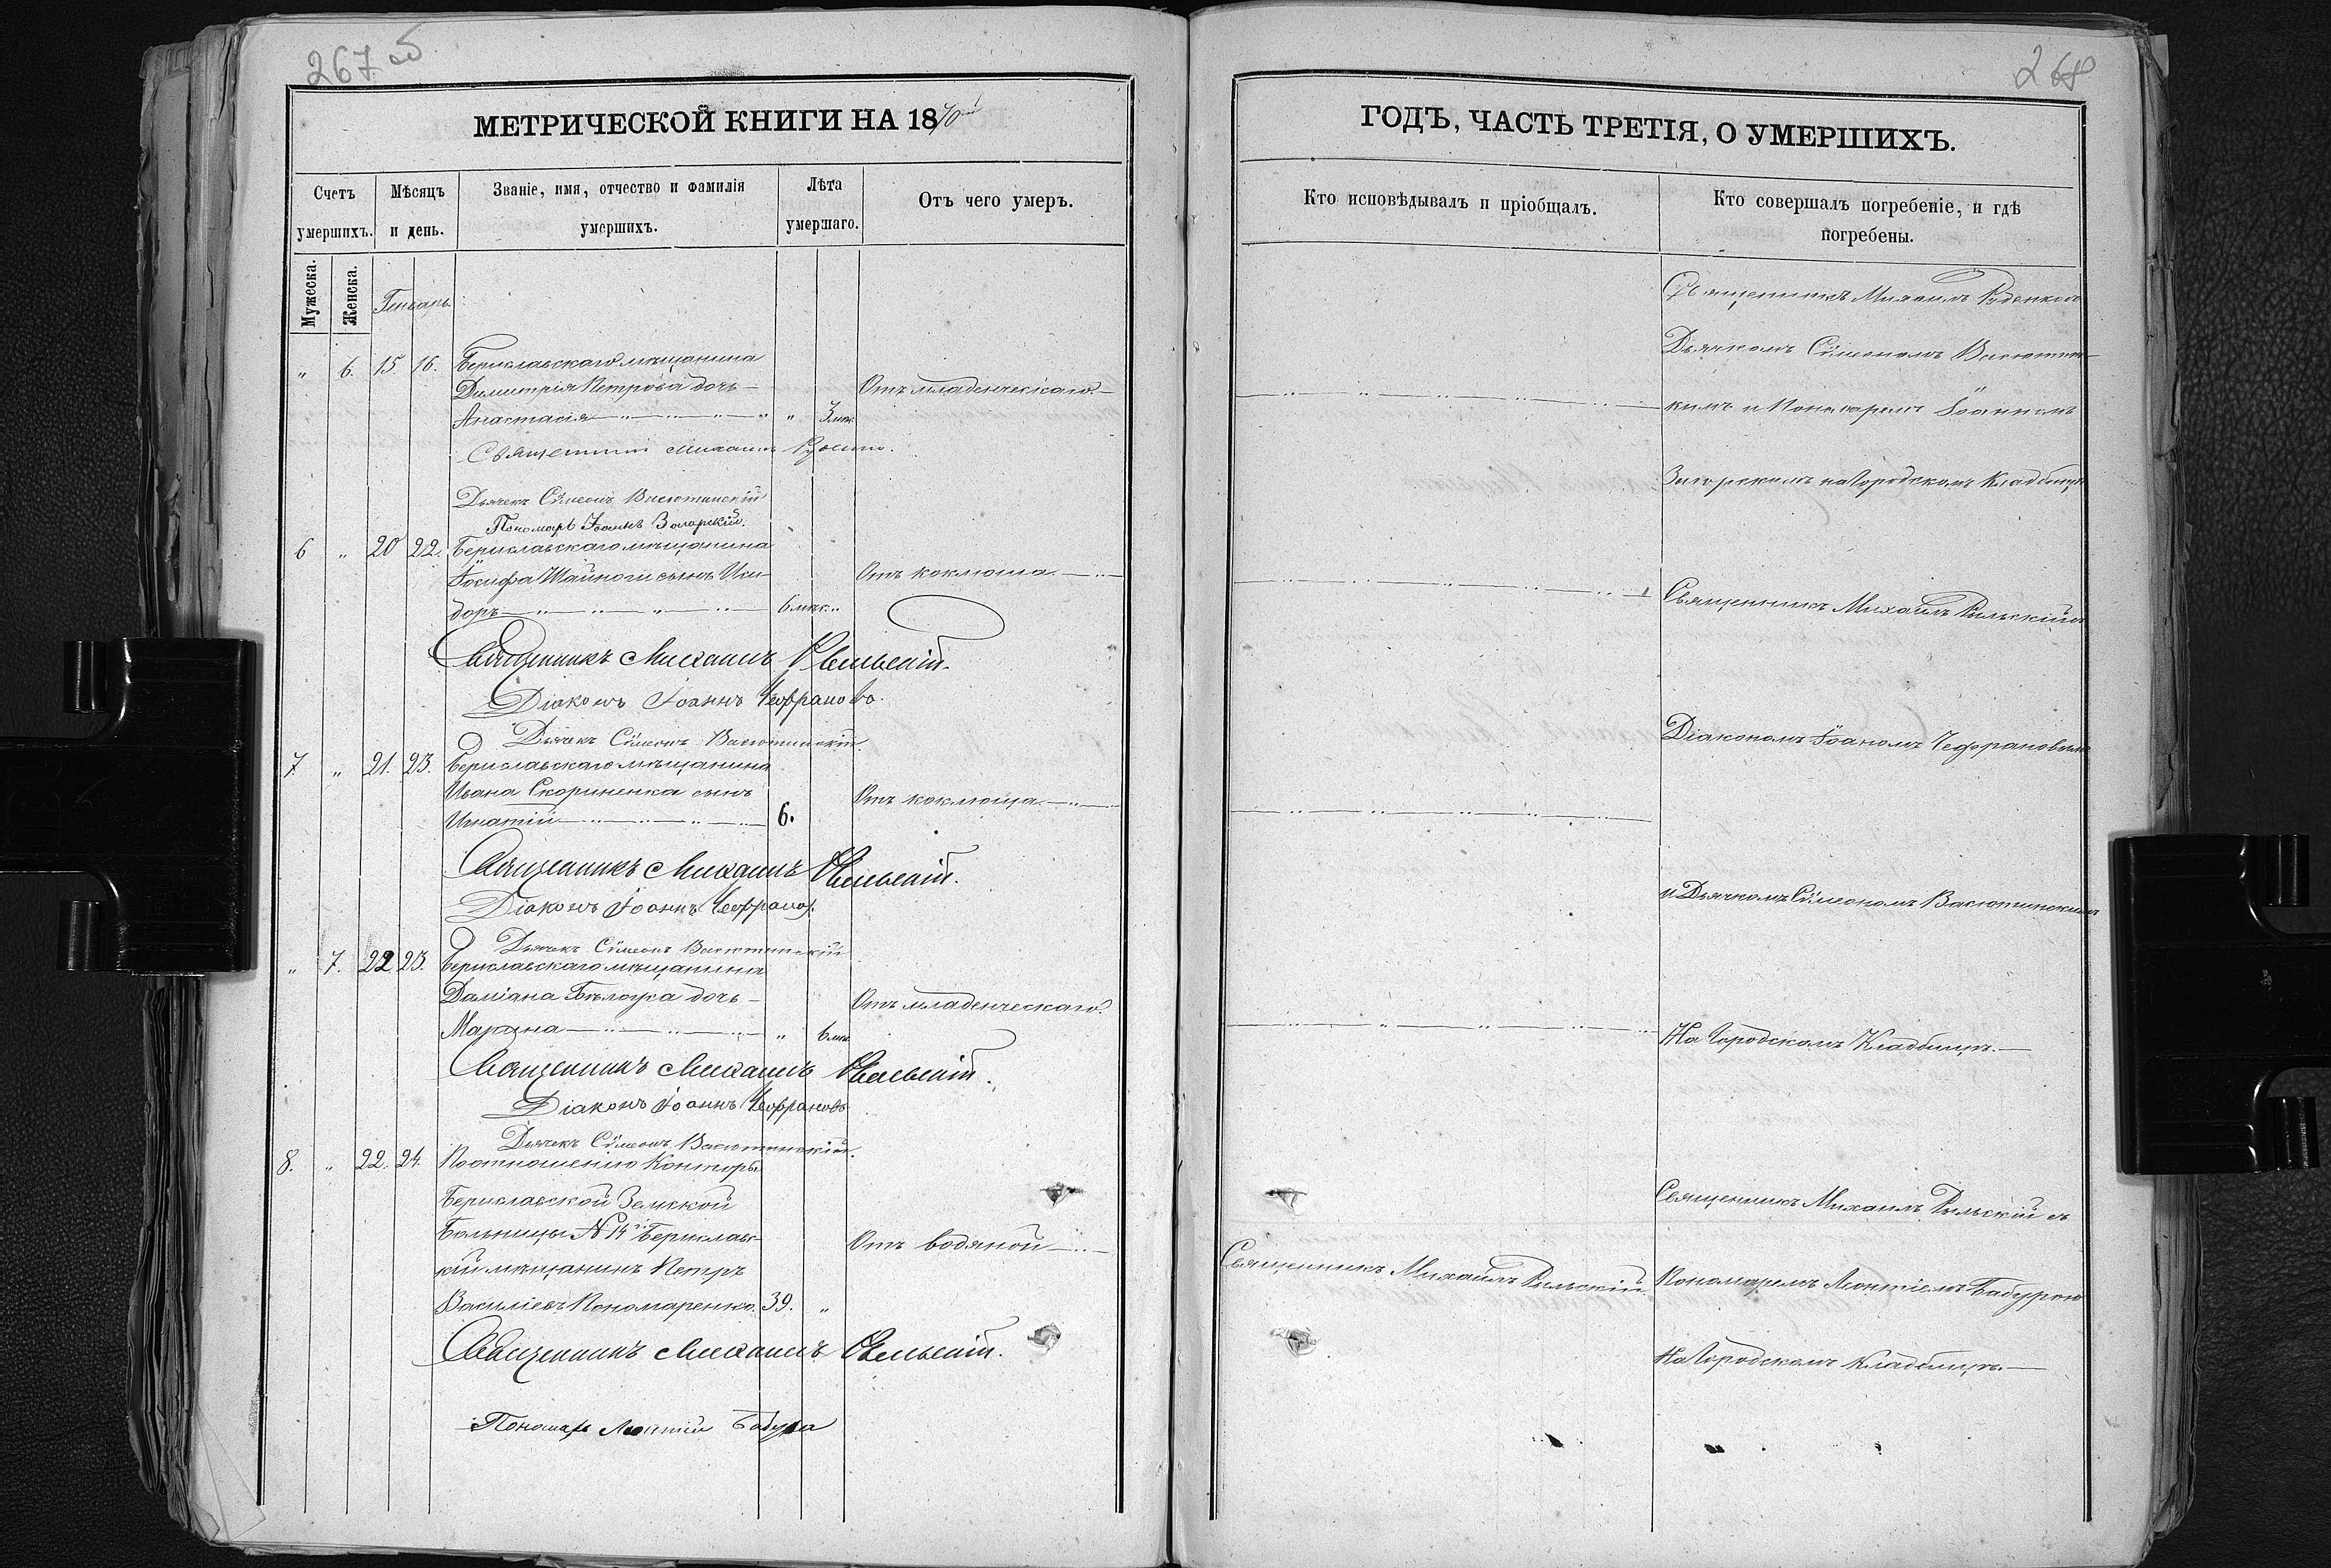 267
МЕТРИЧЕСКОЙ КНИГИ НА 1870й
Счетъ умершихъ.
Мѣсяцъ и день.
Званіе, имя, отчество и фамилія умершихъ.
Лѣта умершаго.
Отъ чего умеръ.
Мужеска.
Женска.
Генварь.
" 6. 15. 16. Бериславскаго мѣщанина
Димитрія Петрова дочь — Отъ младенческаго. —
Анастасія " " 3 мѣс.
Священникъ Михаилъ
Дьячекъ Сѵмеонъ Васютинскій
Пономарь Іоаннъ Загорскій.
6 " 20 22. Бериславскаго мѣщанина
Іосифа Шайноги сынъ Иси- Отъ коклюша.
доръ 6 мѣс. "
Священникъ Михаилъ Рыльскій.
Діаконъ Іоаннъ Чефрановъ.
Дьячекъ Сѵмеонъ Васютинскій.
7. " 21. 23. Бериславскаго мѣщанина
Ивана Скориненка сынъ Отъ коклюша.
Игнатій 6.
Священникъ Михаилъ Рыльскій.
Діаконъ Іоаннъ Чефранов.
Дьячекъ Сѵмеонъ Васютинскій
" 7. 22 23. Бериславскаго мѣщанина
Даміана дочь — Отъ младенческаго.
Марина " 6 мѣс.
Священникъ Михаилъ Рыльскій.
Діаконъ Іоаннъ Чефрановъ
Дьячекъ Сѵмеонъ Васютинскій.
8. " 22. 24. По отношенію Конторы
Бериславской Земской
Больницы № 14й Берислав- Отъ водяной
кій мѣщанинъ Петръ
Василіевъ Пономаренко. 39. "
Священникъ Михаилъ Рыльскій.
Пономарь Леонтій Бабура
268
ГОДЪ, ЧАСТЬ ТРЕТІЯ, О УМЕРШИХЪ.
Кто исповѣдывалъ и пріобщалъ.
Кто совершалъ погребеніе, и гдѣ погребены.
Священникъ Михаилъ
Дьячкомъ Сѵмеономъ Васютин-
кимъ и Пономаремъ Іоанномъ
Загорскимъ на Городскомъ Кладбищѣ
Священникъ Михаилъ Рыльскій съ
Діакономъ Іоаномъ Чефрановымъ
и Дьячкомъ Сѵмеономъ Васютинскимъ
На Городскомъ Кладбищѣ. —
Священникъ Михаилъ Рыльскій съ
Священникъ Михаилъ Рыльскій. Пономаремъ Леонтіемъ Бабурою
На Городскомъ Кладбищѣ. —